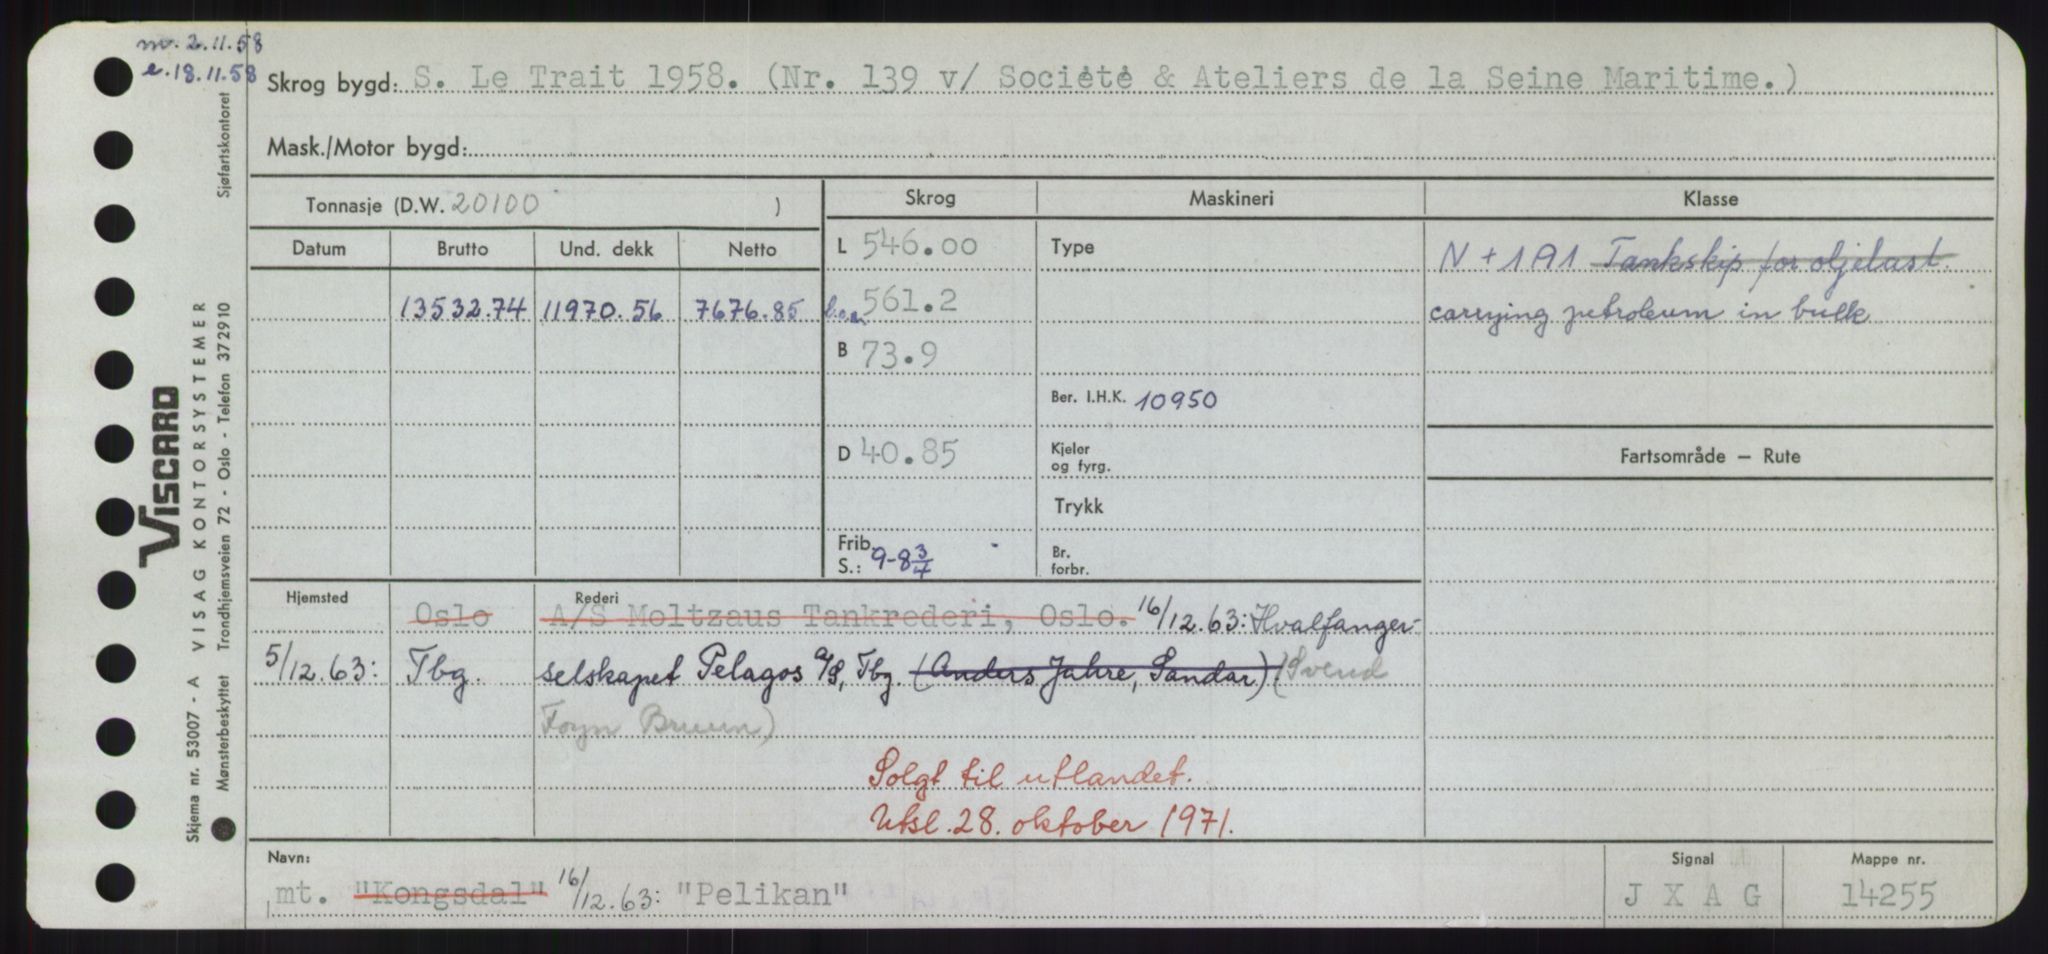 m. 2.11.58
e. 18.11.58
Skrog bygd: S. Le Trait 1958. (Nr. 139 v/ Société & Ateliers de la Seine Maritime.)
Mask./Motor bygd:
Tonnasje (D.W. 20100 )
Skrog Maskineri Klasse
Datum Brutto Und. dekk Netto
L 546.00 Type N + 1A1 Tankskip for oljelast.
13532.74 11970.56 7676.85 b.o.a. 561.2 carrying petroleum in bulk
B 73.9
Ber. I.H.K. 10950
D 40.85 Kjeler og fyrg. Fartsområde – Rute
Trykk
Frib. S.: 9-8 3/4 Br. forbr.
Hjemsted Rederi
Oslo A/S Moltzaus Tankrederi, Oslo. 16/12.63: Hvalfanger-
5/12.63: Tbg. selskapet Pelagos A/S, Tbg. (Anders Jahre, Sandar) (Svend
Foyn Bruun)
Solgt til utlandet.
Utsl. 28. oktober 1971.
Navn: Signal Mappe nr.
mt. "Kongsdal" 16/12.63: "Pelikan" J X A G 14255
VISCARD
Skjema nr. 53007 - A VISAG KONTORSYSTEMER
Mønsterbeskyttet Trondhjemsveien 72 - Oslo - Telefon 372910 Sjøfartskontoret